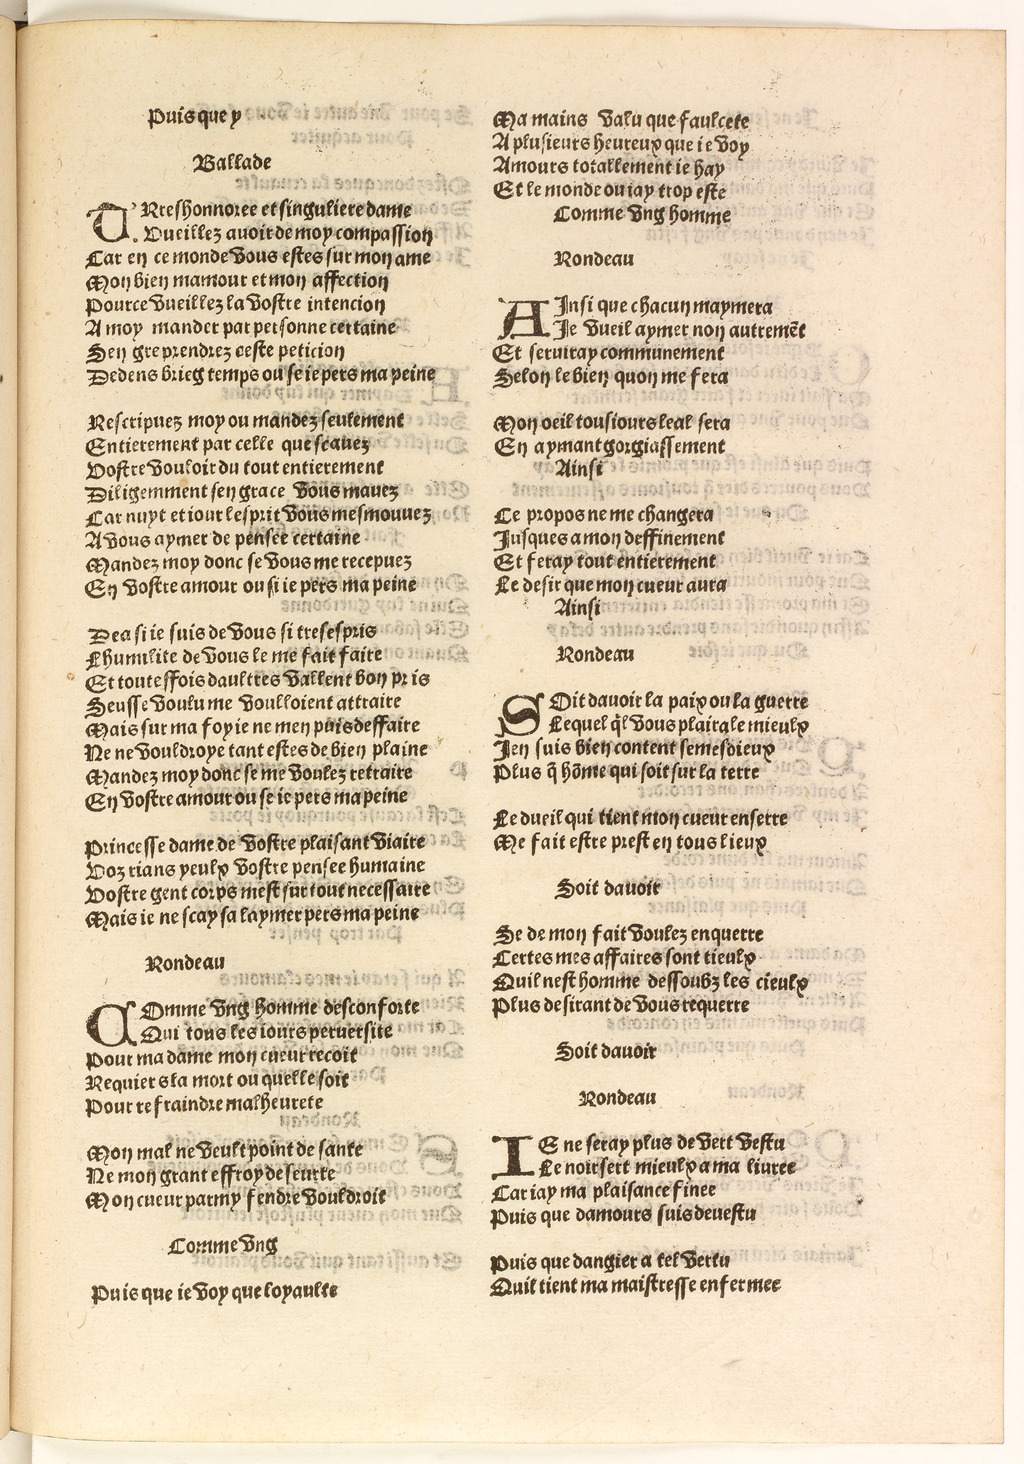 Puis que y
Ballade
TRreshonnoree et singuliere dame
Vueillez auoir de moy compassion
Car en ce monde vous estes sur mon ame
Mon bien mamour et mon affection
Pource vueillez la vostre intencion
A moy mander par personne certaine
Sen gre prendrez ceste peticion
Dedens brieg temps ou se ie pers ma peine
Rescripuez moy ou mandez seulement
Entierement par celle que scauez
Vostre vouloir du tout entierement
Diligemment sen grace vous mauez
Car nuyt et iour lesprit vous mesmouuez
A vous aymer de pensee certaine
Mandez moy donc se vous me recepuez
En vostre amour ou si ie pers ma peine
Dea si ie suis de vous si tresespris
Lhumilite de vous le me fait faire
Et toutesfois daultres vallent bon pris
Seusse voulu me voulloient attraire
Mais sur ma foy ie ne men puis deffaire
Ne ne vouldroye tant estes de bien plaine
Mandez moy donc se me voulez retraire
En vostre amour ou se ie pers ma peine
Princesse dame de vostre plaisant viaire
Voz rians yeulx vostre pensee humaine
Vostre gent corps mest sur tout necessaire
Mais ie ne scay sa laymer pers ma peine
Rondeau
COmme vng homme desconforte
Qui tous les iours peruersite
Pour ma dame mon cueur recoit
Requier sla mort ou quelle soit
Pour refraindre malheurete
Mon mal ne veult point de sante
Ne mon grant effroy de seurte
Mon cueur parmy fendre vouldroit
Comme vng
Puis que ie voy que loyaulte
Ma mains valu que faulcete
A plusieurs heureux que ie voy
Amours totallement ie hay
Et le monde ou iay trop este
Comme vng homme
Rondeau
AInsi que chacun maymera
Je vueil aymer non autremẽt
Et seruiray communement
Selon le bien quon me fera
Mon oeil tousiours leal sera
En aymant gorgiassement
Ainsi
Ce propos ne me changera
Jusques a mon deffinement
Et feray tout entierement
Le desir que mon cueur aura
Ainsi
Rondeau
SOit dauoir la paix ou la guerre
Lequel q̃l vous plaira le mieulx
Jen suis bien content semesdieux
Plus q̃ hõme qui soit sur la terre
Le dueil qui tient mon cueur enserre
Me fait estre prest en tous lieux
Soit dauoir
Se de mon fait voulez enquerre
Certes mes affaires sont tieulx
Quil nest homme dessoubz les cieulx
Plus desirant de vous requerre
Soit dauoir
Rondeau
IE ne seray plus de vert vestu
Le noir sert mieulx a ma liuree
Car iay ma plaisance finee
Puis que damours suis deuestu
Puis que dangier a tel vertu
Quil tient ma maistresse enfermee